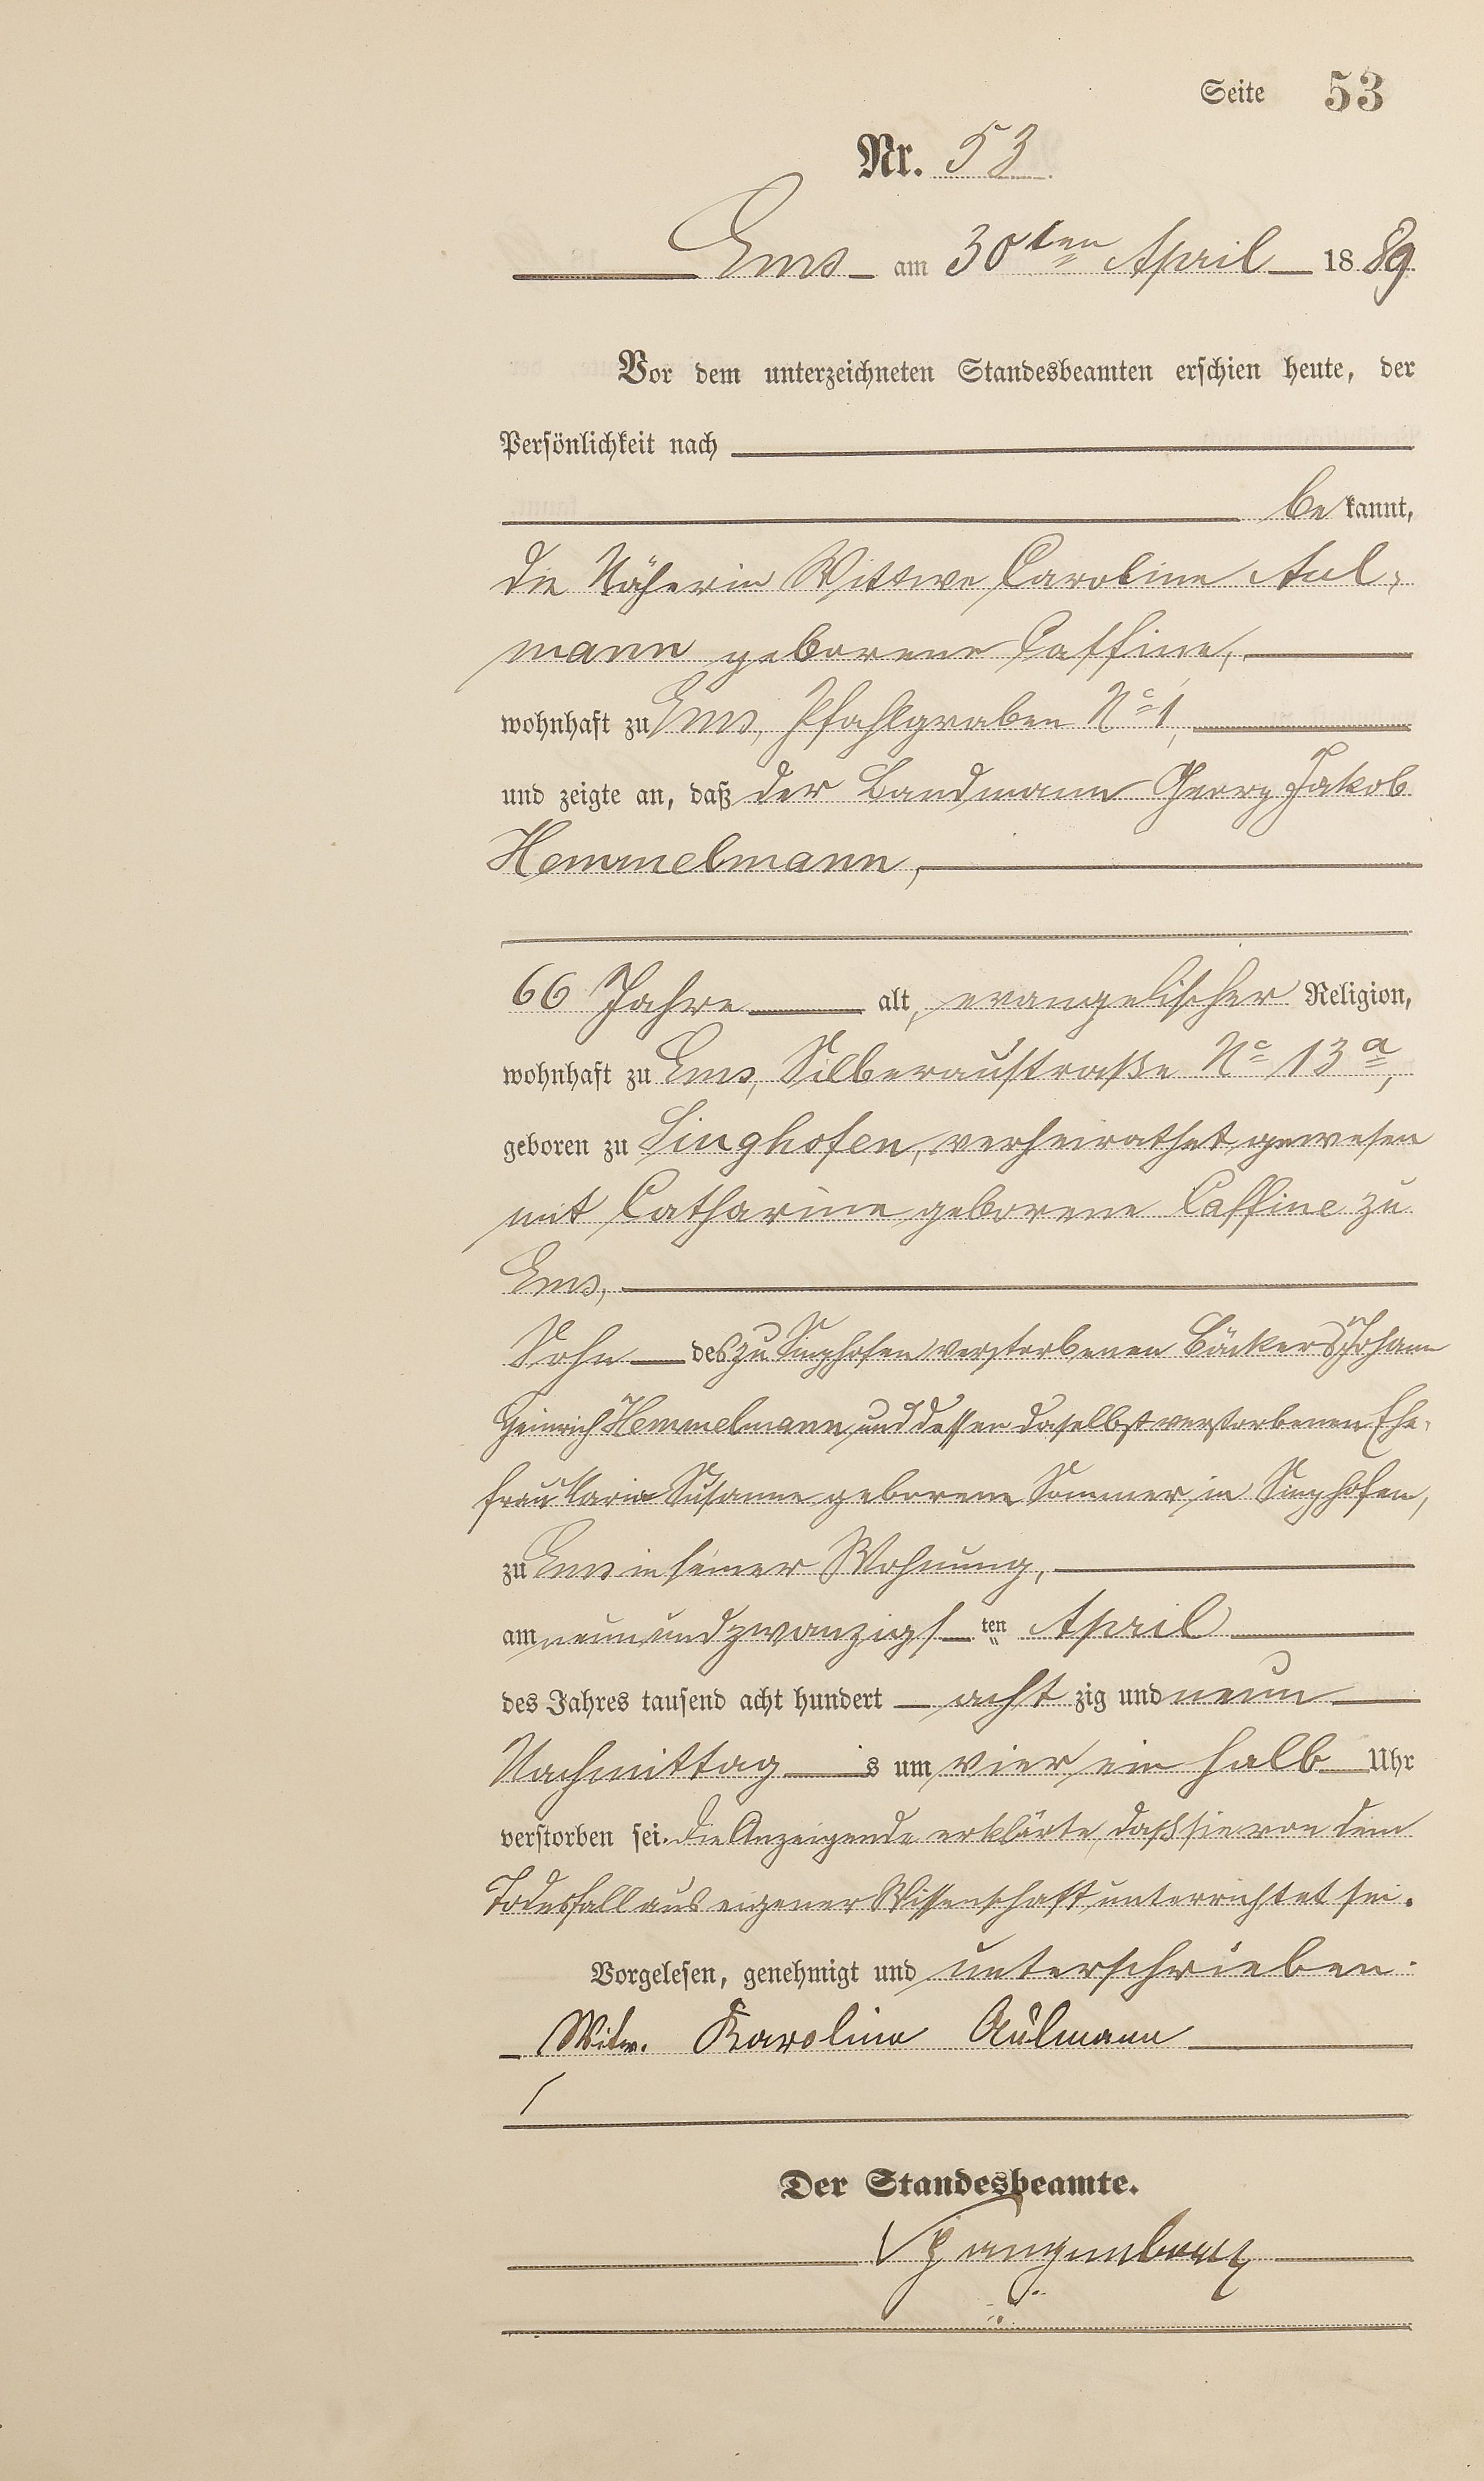 Seite 53
Nr. 53
Ems am 30ten April 1889
Vor dem unterzeichneten Standesbeamten erschien heute, der
Persönlichkeit nach
bekannt,
die Näherin Wittwe Caroline Aul-
mann geborene Caffine,
wohnhaft zu Ems, Pfahlgraben No 1,
und zeigte an, daß der Landmann Georg Jakob
Hemmelmann,
66 Jahre alt, evangelischer Religion,
wohnhaft zu Ems, Silberaustraße No 13a,
geboren zu Singhofen, verheirathet gewesen
mit Catharine geborene Caffine zu
Ems,
Sohn des zu Singhofen verstorbenen Bäckers Johann
Heinrich Hemmelmann und dessen daselbst verstorbenen Ehe-
frau Maria Susanne geborene Sommer, in Singhofen,
zu Ems in seiner Wohnung,
am neunundzwanzigsten April
des Jahres tausend acht hundert achtzig und neun
Nachmittags um vier ein halb Uhr
verstorben sei. Die Anzeigende erklärte, daß sie von dem
Todesfall aus eigener Wissenschaft unterrichtet sei.
Vorgelesen, genehmigt und unterschrieben.
Witw. Karoline Aulmann
Der Standesbeamte.